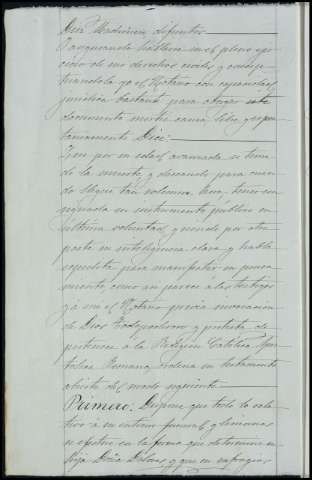 Don Mauricio, difuntos.
Y asegurando hallarse en el pleno eje-
cicio de sus derechos civiles y concep-
tuandola yo el Notario con capacidad
jurídica bastante para otorgar este
documento mortis causa, libre y espon-
táneamente Dice:
Que por su edad avanzada se teme
de la muerte y deseando para cuan-
do llegue tan solemne hora tener con-
signada en instrumento público su
última voluntad, gozando por otra
parte de inteligencia clara y habla
expedita para manifestar su pensa-
miento, como así parece á los testigos
y á mí el Notario previa invocación
de Dios Todopoderoso y protesta de
pertenecer á la Religión Católica Apos-
tólica Romana, ordena su testamento
abierto del modo siguiente.
Primero: Dispone que todo lo rela-
tivo á su entierro, funeral y demás
se efectúe en la forma que determine su
hija Doña Dolores y que en sufragio